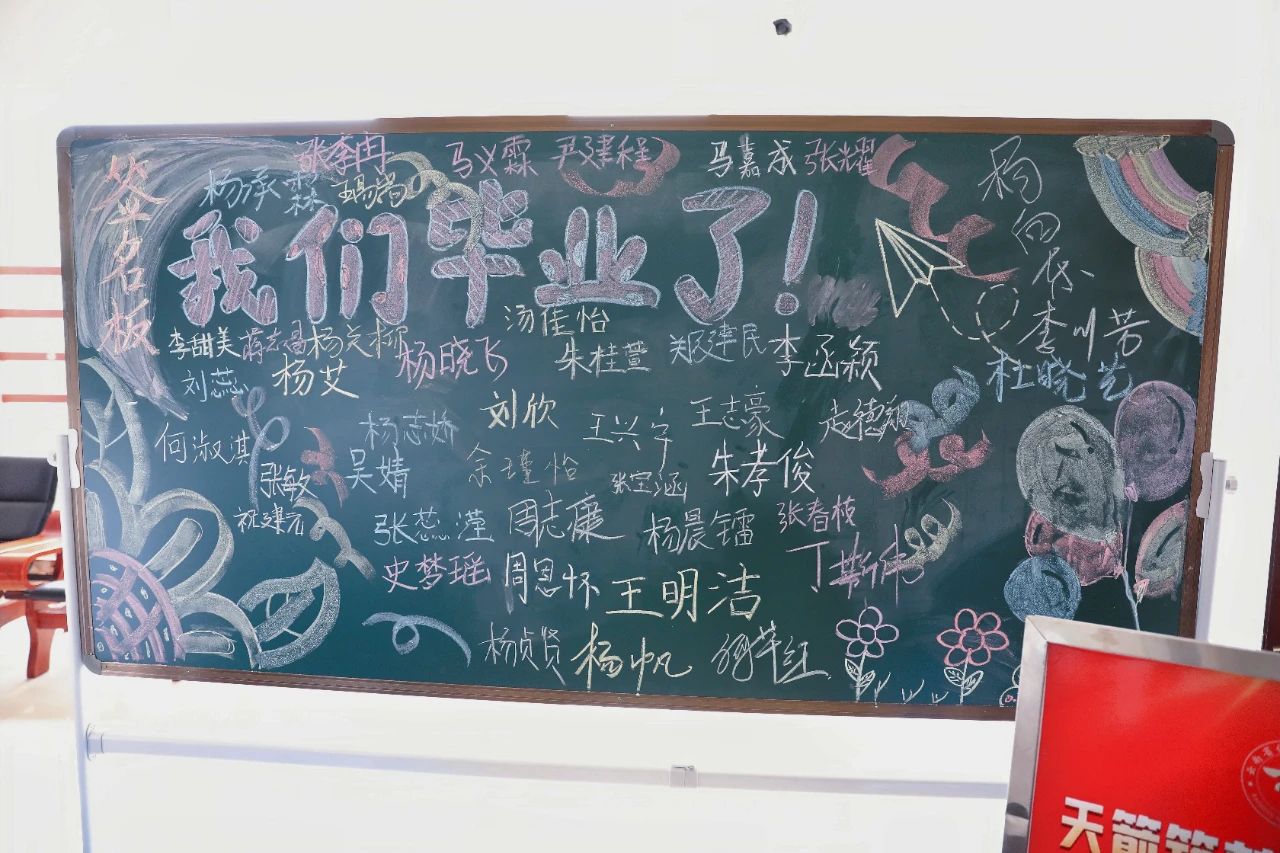 签名板
张李冉
马义霖
尹建程
马嘆成
张耀
杨承霖
我们毕业了!
杨向
李川芳
杜晓艺
汤佳怡
李甜美
蒋志昌
杨晓飞
朱桂萱
郑建民
李函颍
刘蕊
杨艾
刘欣
王兴宇
王志豪
赵德翔
何淑淇
杨志娇
张敏
吴婧
余瑾怡
张宝涵
朱孝俊
祝建云
张蕊滢
周志廉
杨晨镭
张春枝
史梦瑶
周恩怀
王明洁
丁斯伟
杨贞贤
杨帆
天箭